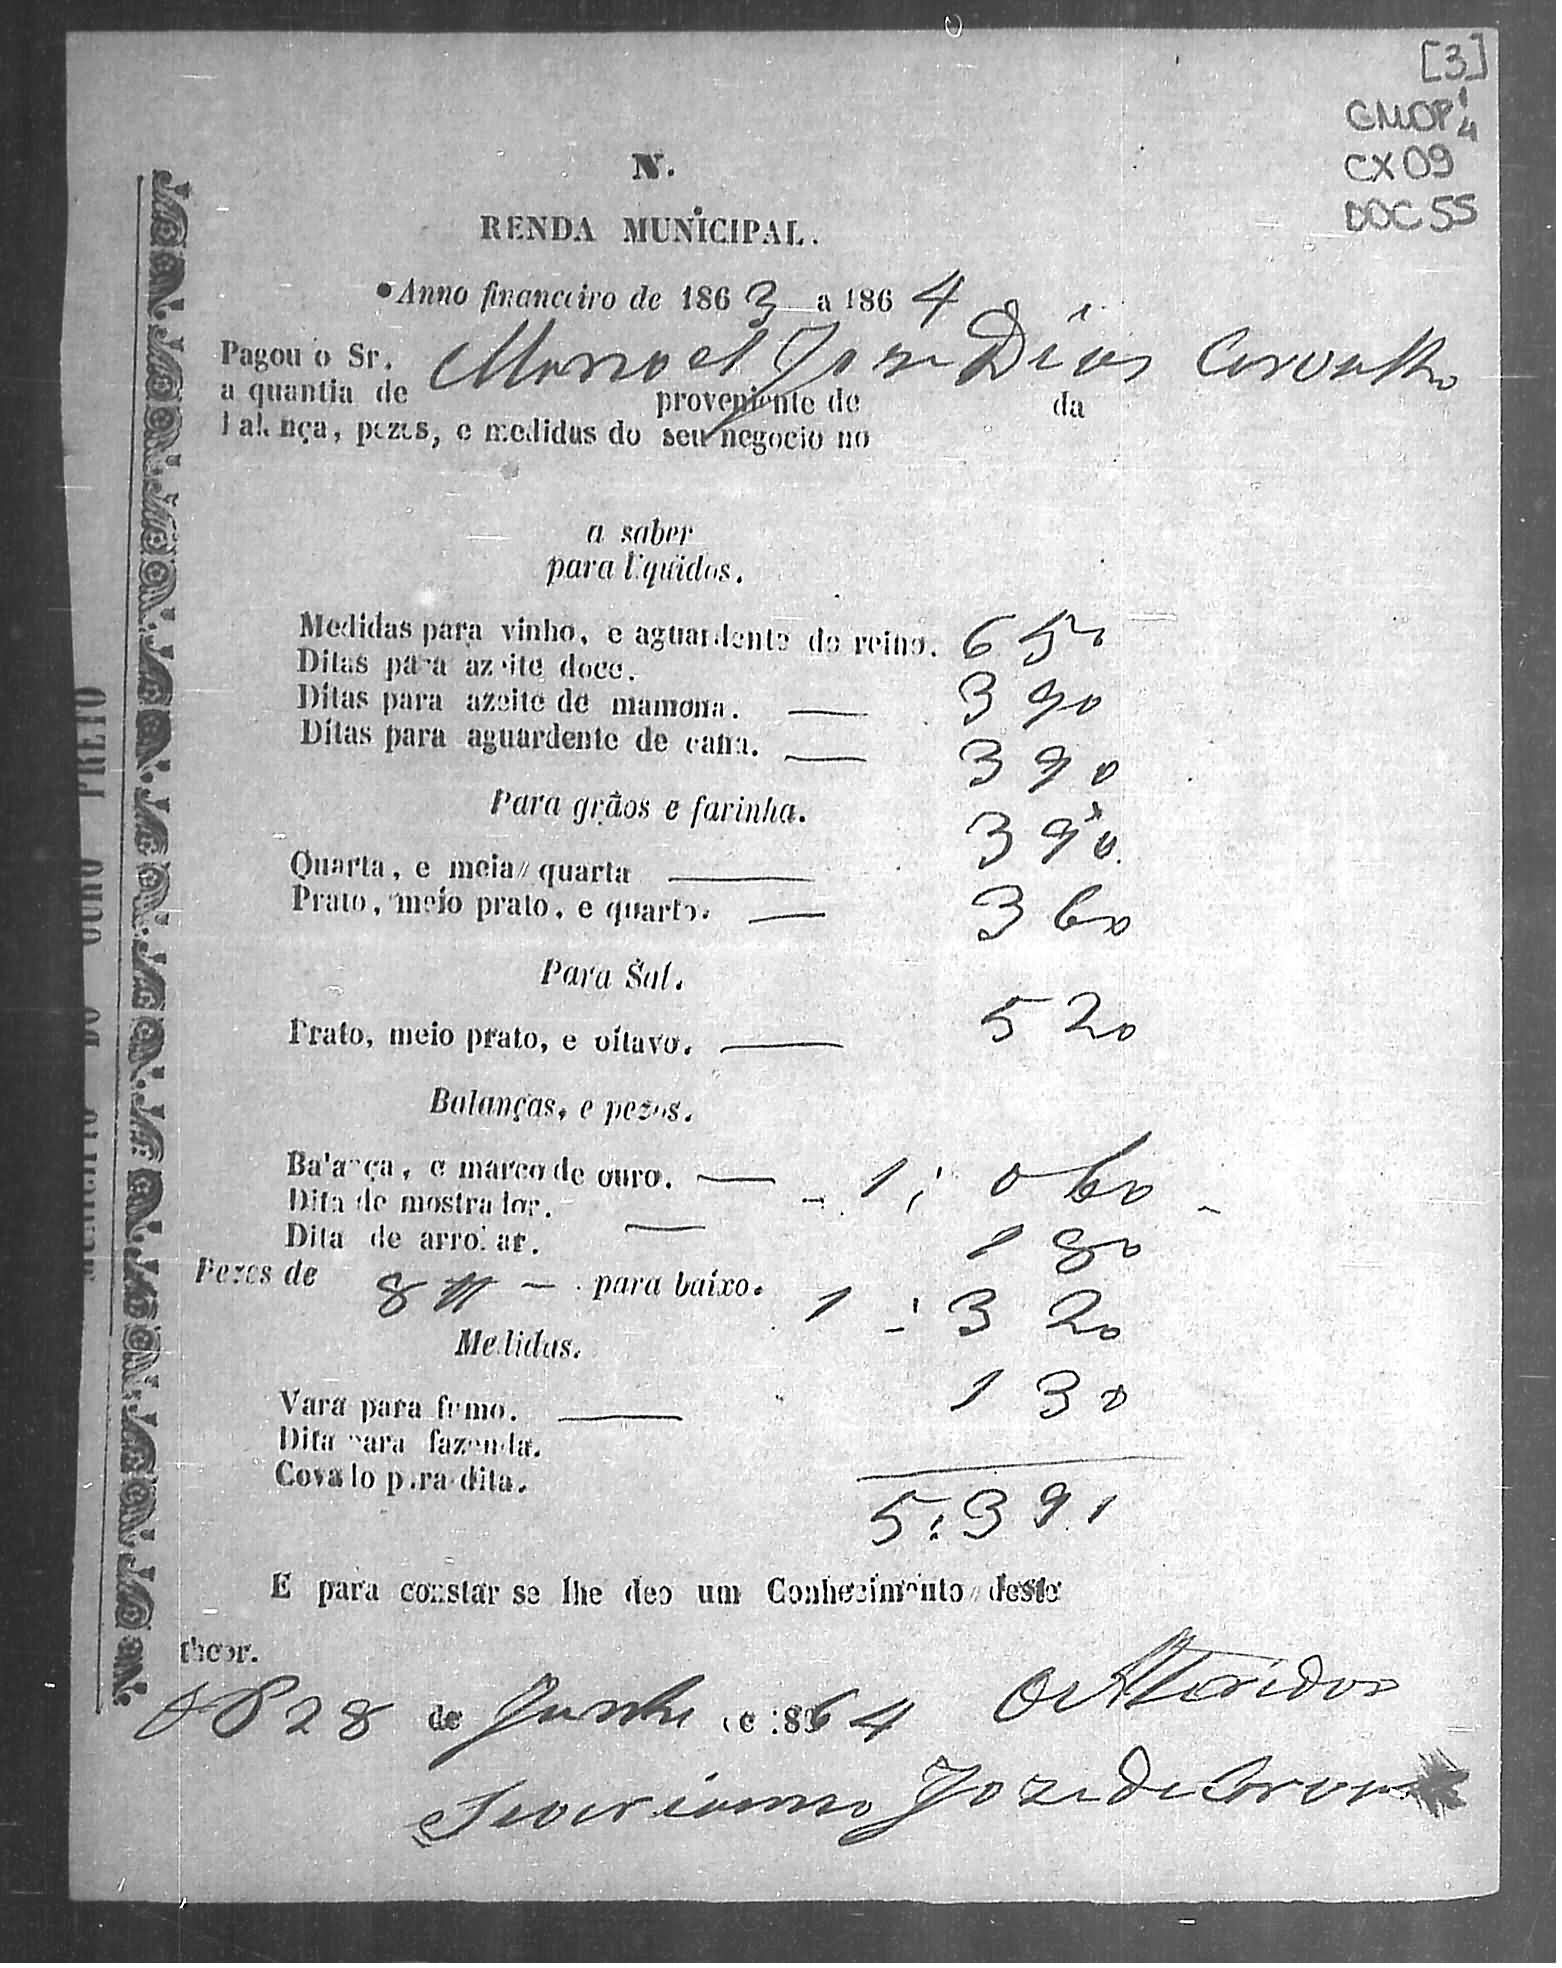 [3]
CMOP 1/4
CX 09
DOC 55
N.
RENDA MUNICIPAL.
Anno financeiro de 1863 a 1864
Pagou o Sr. Manoel Joze Dias Carvalho
a quantia de proveniente de da
balança, pezos, e medidas do seu negocio no
a saber
para liquidos.
Medidas para vinho, e aguardente do reino. 650
Ditas para azeite doce.
Ditas para azeite de mamona. — 390
Ditas para aguardente de cana. — 390
Para grãos e farinha.
Quarta, e meia quarta — 390
Prato, meio prato, e quarto. — 360
Para Sal.
Prato, meio prato, e oitavo. — 520
Balanças, e pezos.
Balança, e marco de ouro. — 1:060
Dita de mostrador.
Dita de arrobar. — 180
Pezos de 8 — para baixo. 1:320
Medidas.
Vara para fumo. — 130
Dita para fazenda.
Covado para dita.
5:391
E para constar se lhe deo um Conhecimento deste
theor.
OP 28 de Junho de 1864 O Afferidor
Severianno Joze de
MUNICIPIO DO OURO PRETO